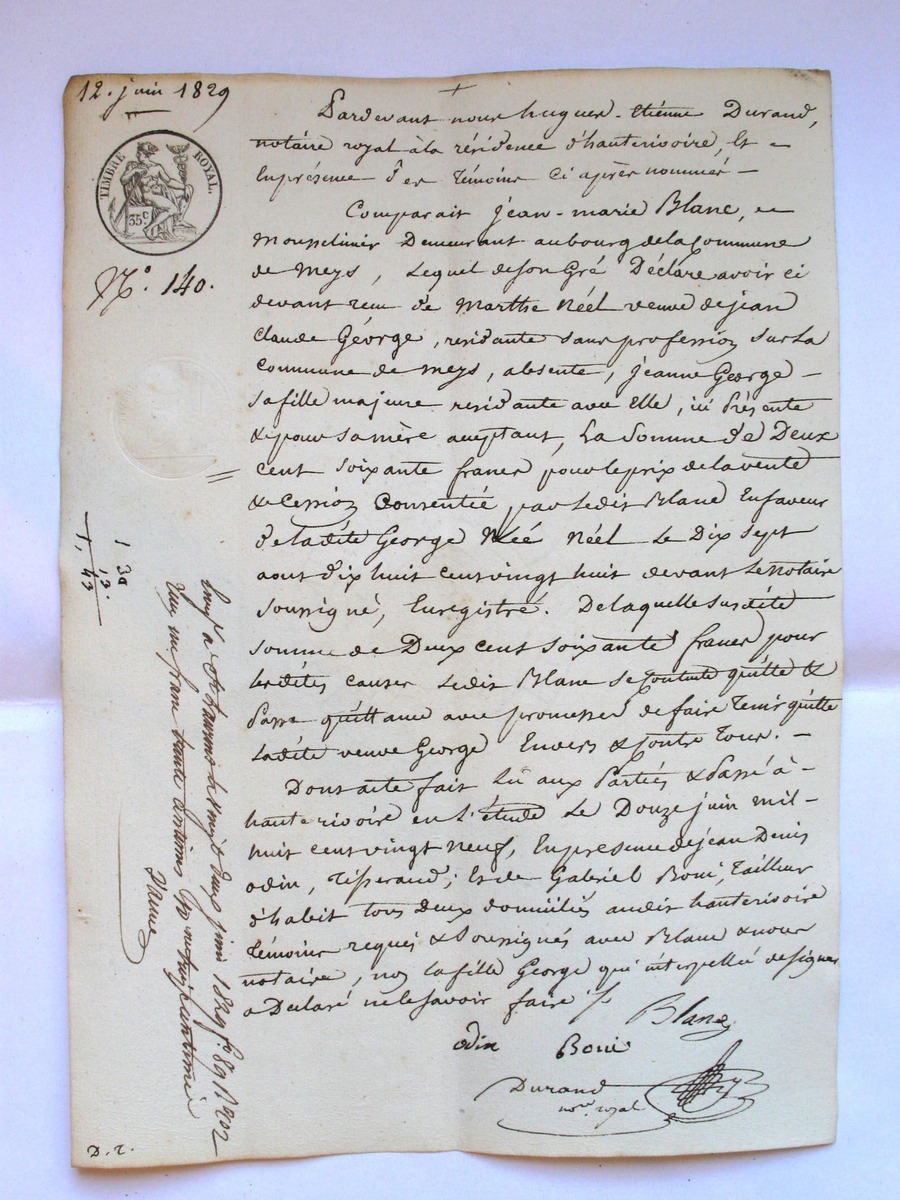 12. juin 1829
TIMBRE ROYAL.
35c
N°. 140.
Pardevant nous hugues-étienne Durand,
notaire royal à la résidence d'hauterivoire, Et
En présence des témoins ci après nommés —
Comparait jean-marie Blanc,
Mousselinier Demeurant au bourg de la Commune
de Meys, Lequel de son Gré Déclare avoir ci
devant reçu de Marthe Néel veuve de jean
claude Géorge, residante sans profession sur La
commune de meys, absente, jeanne George —
sa fille majeure residante avec Elle, ici Présente
& pour sa mère acceptant, La Somme de Deux
cent soixante francs pour le prix de la vente
& Cession Consentie par Ledit Blanc En faveur
de ladite George Néé Néel Le Dix Sept
aout dix huit cent vingt huit devant Le Notaire
soussigné, Enregistré. De laquelle susdite
somme de Deux cent soixante francs pour
lesdites causes Ledit Blanc se contente quitte &
Passe quittance avec promesse de faire Tenir quitte
Ladite veuve George Envers & contre Tous. —
Dont acte fait Lû aux Parties & Passé à —
hauterivoire en L'étude Le Douze juin mil —
huit cent vingt neuf, En présence de jean Denis
odin, Tisserand; Et de Gabriel Boni, Tailleur
d'habit tous Deux domiciliés audit hauterivoire
Témoins requis & Soussignés avec Blanc & nous
notaire, non la fille George qui interpellée de signer
a Declaré ne le savoir faire
Blanc
odin Boni
Durand
nore royal
1 30
13.
1, 43
Enrgé à St. Laurent de
juin 1829. fo 89
Reçu un franc trente centimes
D. r.